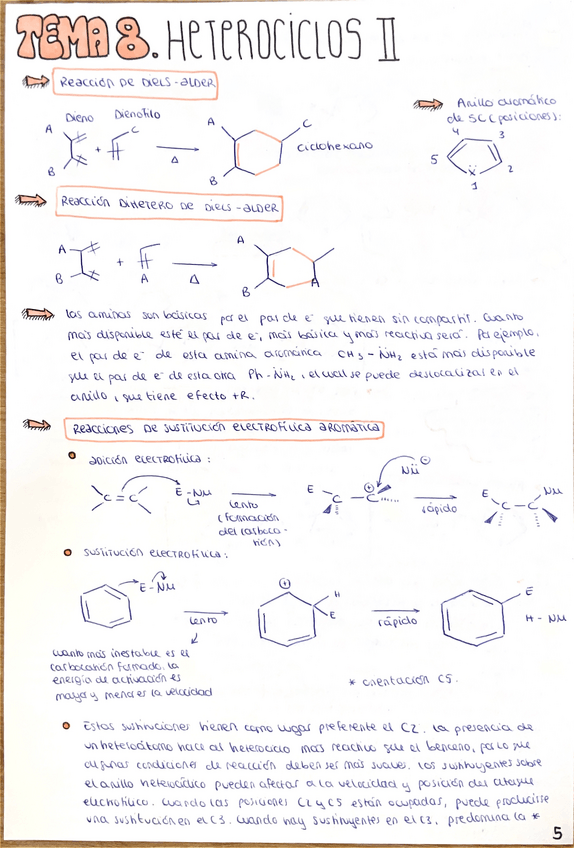 TEMA 8. HETEROCICLOS II
REACCIÓN DE DIELS-ALDER
Dieno Dienofilo
A
C
+
B
Δ
A
C
B
ciclohexano
Anillo aromático
de 5C (posiciones):
4
3
5
2
X
1
REACCIÓN DIHETERO DE DIELS-ALDER
A
B
+
A
Δ
A
B
A
las aminas son básicas por el par de e⁻ que tienen sin compartir. Cuanto
más disponible esté el par de e⁻, más básica y más reactiva será. Por ejemplo,
el par de e⁻ de esta amina aromática CH₃-NH₂ está más disponible
que el par de e⁻ de esta otra Ph-NH₂, el cual se puede deslocalizar en el
anillo, que tiene efecto +R.
REACCIONES DE SUSTITUCIÓN ELECTROFÍLICA AROMÁTICA
ADICIÓN ELECTROFÍLICA:
C=C
E-Nu
lento
(formación
del carboca-
tión)
E
C-C
⊕
Nu
⊖
rápido
E
C-C
Nu
SUSTITUCIÓN ELECTROFÍLICA:
E-Nu
lento
⊕
H
E
rápido
E
H-Nu
cuanto más inestable es el
carbocatión formado, la
energía de activación es
mayor y menor es la velocidad
* orientación C5.
Estas sustituciones tienen como lugar preferente el C2. La presencia de
un heteroátomo hace al heterociclo más reactivo que el benceno, por lo que
algunas condiciones de reacción deben ser más suaves. Los sustituyentes sobre
el anillo heterocíclico pueden afectar a la velocidad y posición del ataque
electrofílico. Cuando las posiciones C2 y C5 están ocupadas, puede producirse
una sustitución en el C3. Cuando hay sustituyentes en el C3, predomina la *
5